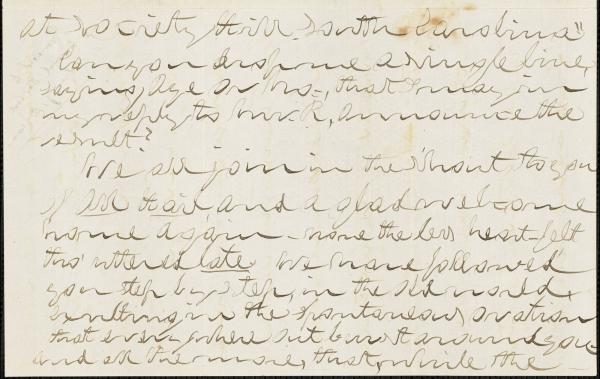 at Society Hill. South Carolina"
Can you drop me a single line,
saying Aye or No, that I may in
my reply to Mr. R, announce the
result?
We all join in the shout to you
of All Hail and a glad welcome
home again - none the less heart-felt
tho' uttered late. We have followed
you step by step, in the old world,
exulting in the spontaneous ovation
that every where out burst around you
and all the more, that, while the